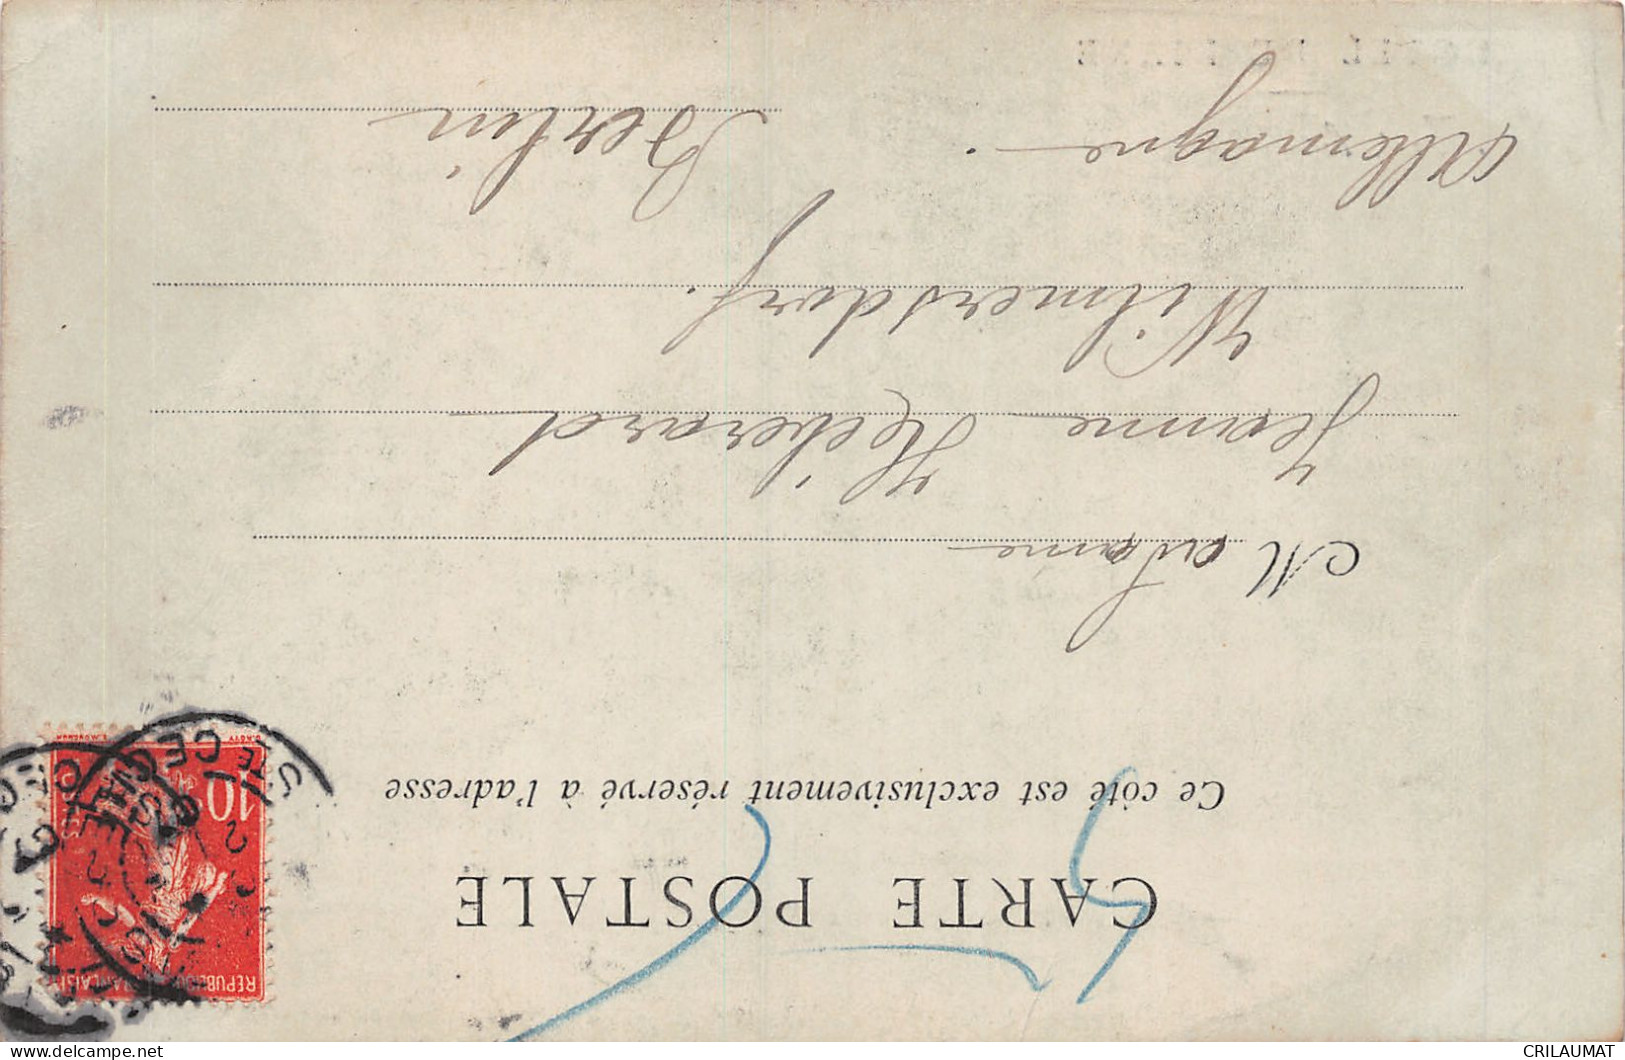 CARTE POSTALE
Ce côté est exclusivement réservé à l'adresse
Madame
Jeanne Heiberard
Wilmersdorf.
Berlin
Allemagne
10
REPUBLIQUE FRANÇAISE
CRILAUMAT